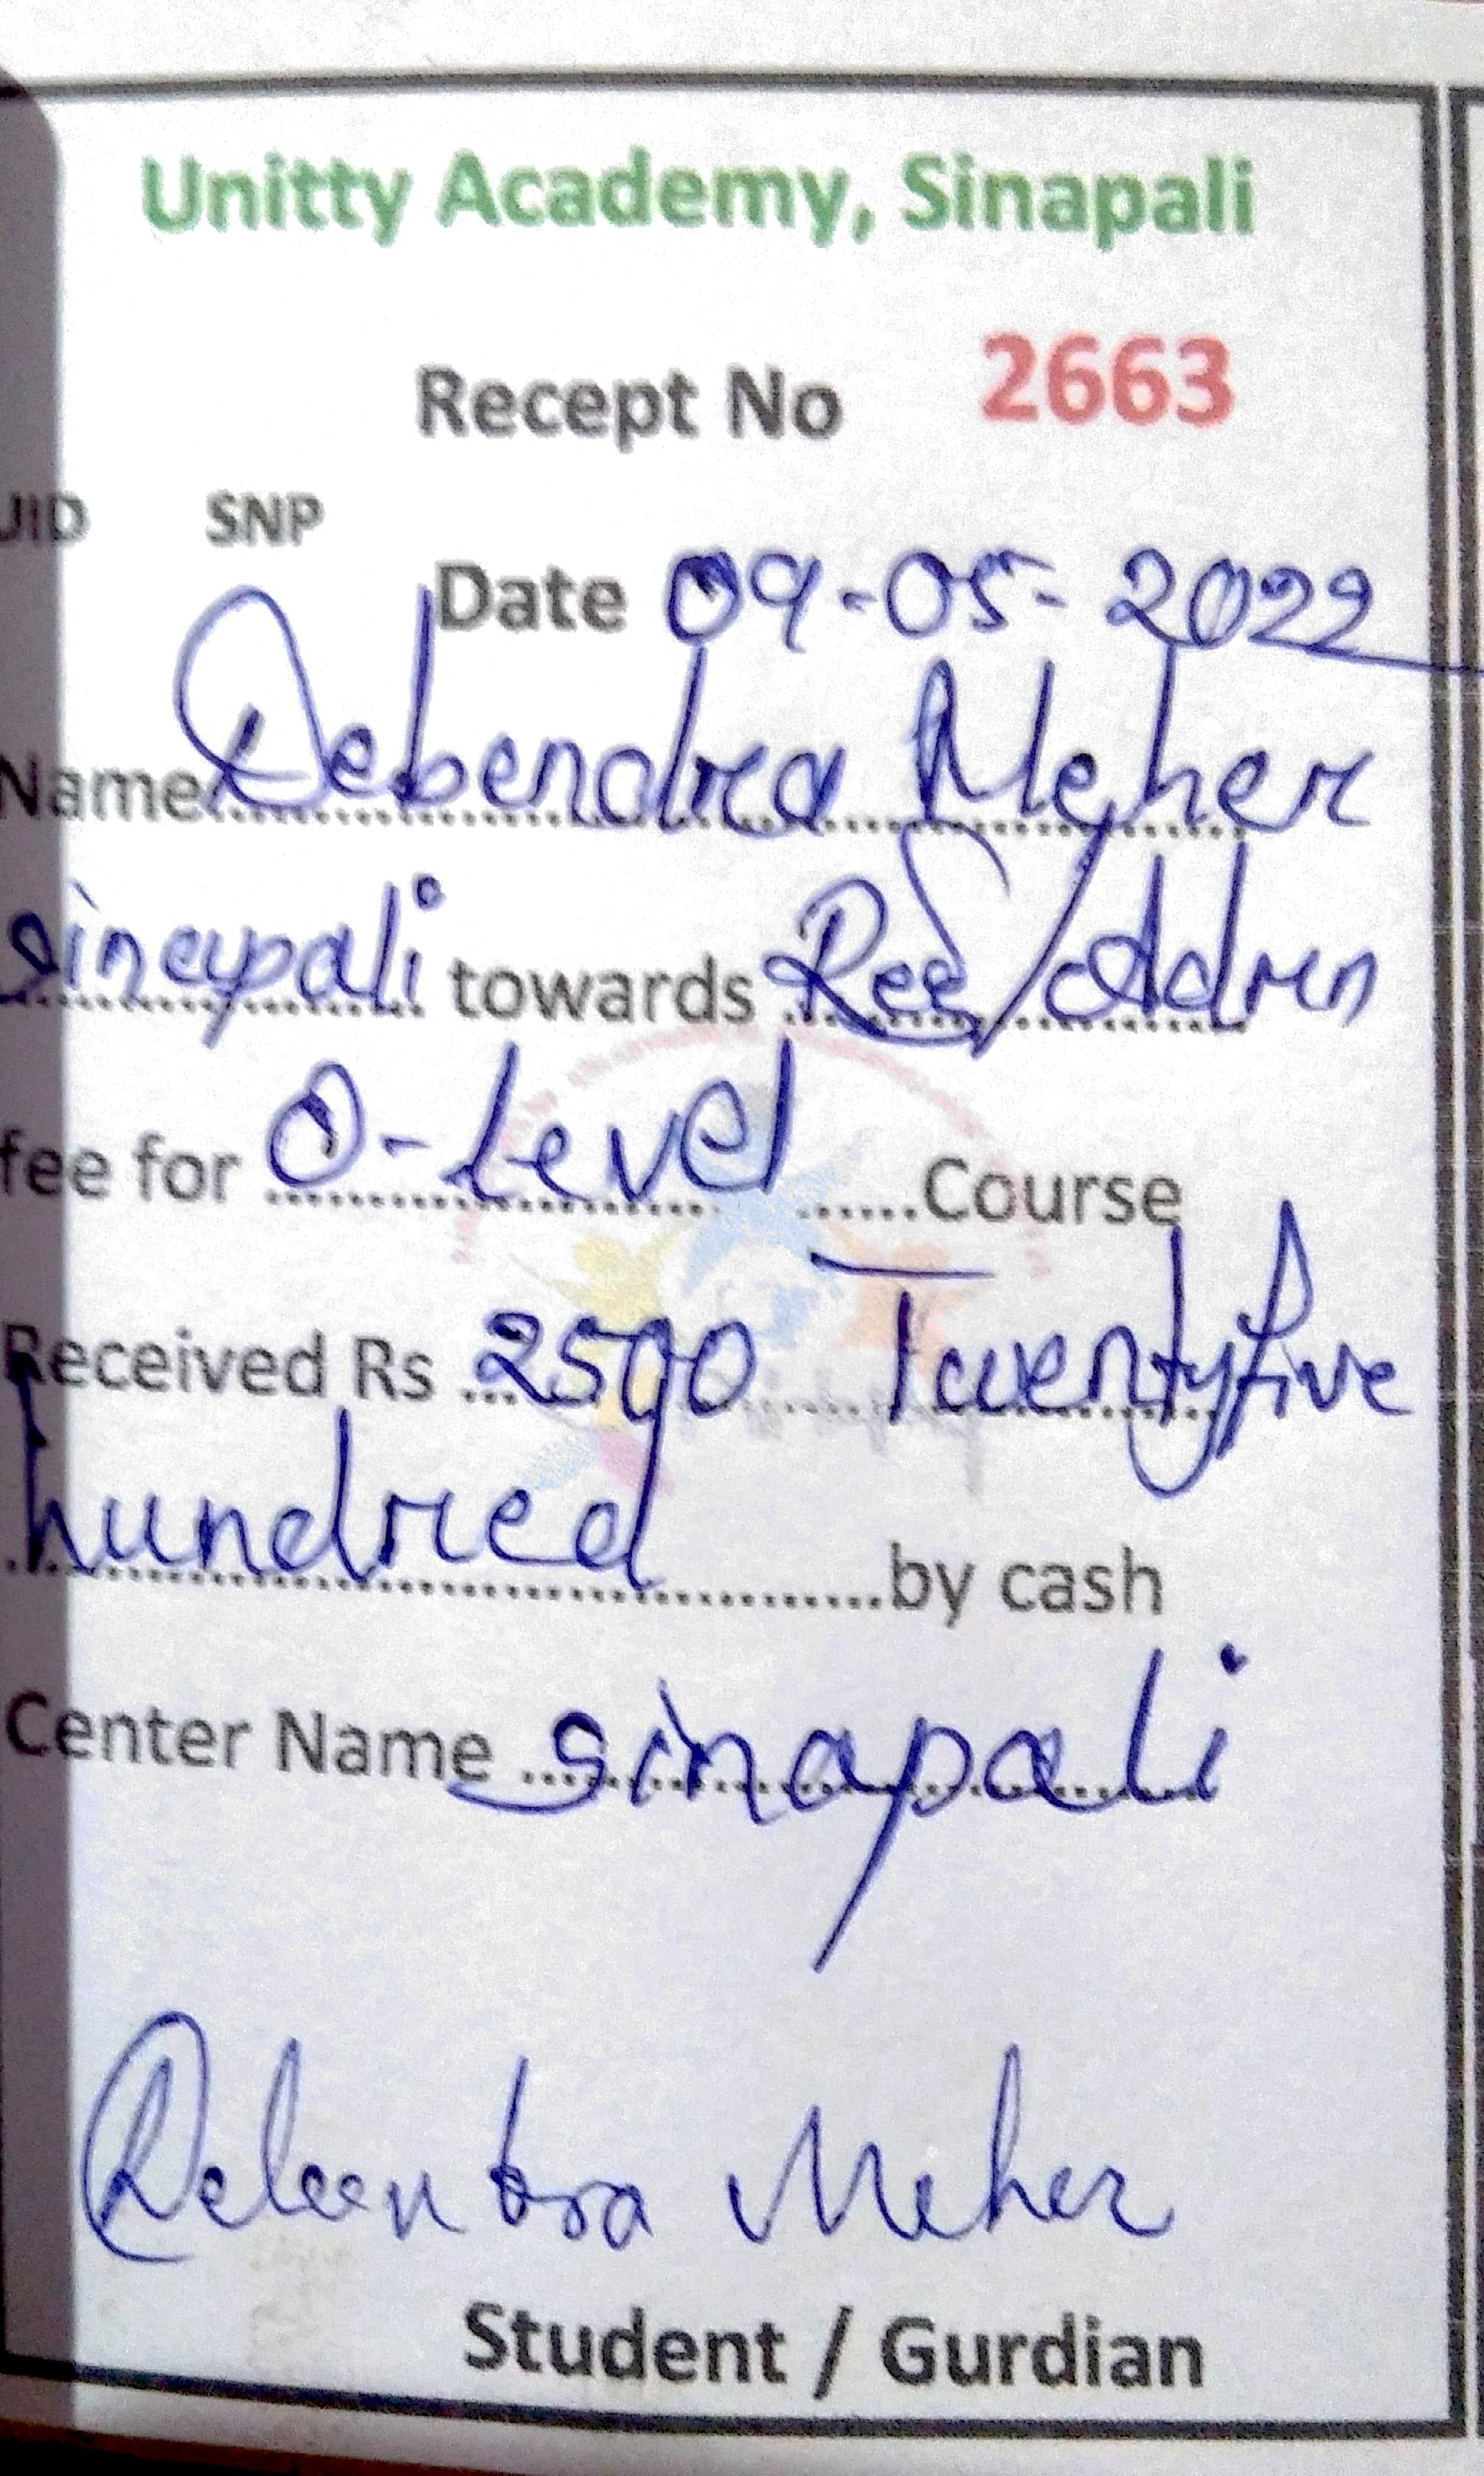 Unitty Academy, Sinapali
Recept No 2663
UID SNP
Date 09-05-2022
Name Debendra Meher
Sinapali towards Reg/Addmn
fee for O-Level Course
Received Rs 2500 Twentyfive
hundred by cash
Center Name Sinapali
Debendra Meher
Student / Gurdian